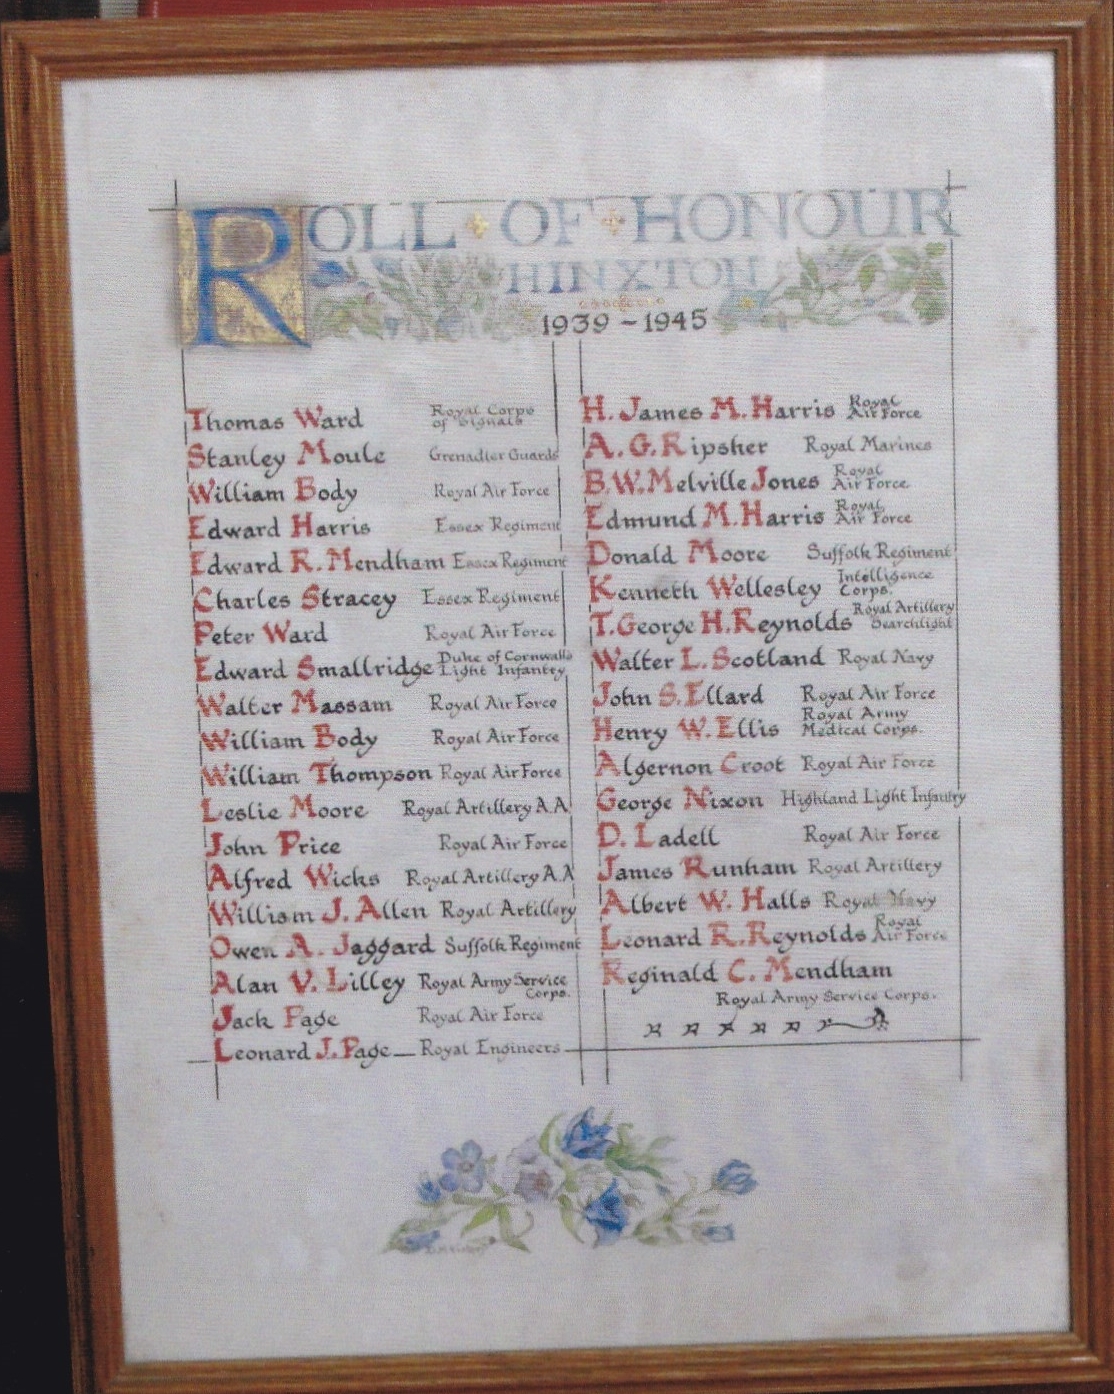 ROLL OF HONOUR
HINXTON
1939 - 1945
Thomas Ward Royal Corps of Signals
Stanley Moule Grenadier Guards
William Body Royal Air Force
Edward Harris Essex Regiment
Edward R. Mendham Essex Regiment
Charles Stracey Essex Regiment
Peter Ward Royal Air Force
Edward Smallridge Duke of Cornwalls Light Infantry
Walter Massam Royal Air Force
William Body Royal Air Force
William Thompson Royal Air Force
Leslie Moore Royal Artillery A.A
John Price Royal Air Force
Alfred Wicks Royal Artillery A.A
William J. Allen Royal Artillery
Owen A. Jaggard Suffolk Regiment
Alan V. Lilley Royal Army Service Corps.
Jack Page Royal Air Force
Leonard J. Page Royal Engineers
H. James M. Harris Royal Air Force
A. G. Ripsher Royal Marines
B.W. Melville Jones Royal Air Force
Edmund M. Harris Royal Air Force
Donald Moore Suffolk Regiment
Kenneth Wellesley Intelligence Corps.
T. George H. Reynolds Royal Artillery Searchlight
Walter L. Scotland Royal Navy
John S. Ellard Royal Air Force
Henry W. Ellis Royal Army Medical Corps.
Algernon Croot Royal Air Force
George Nixon Highland Light Infantry
D. Ladell Royal Air Force
James Runham Royal Artillery
Albert W. Halls Royal Navy
Leonard R. Reynolds Royal Air Force
Reginald C. Mendham
Royal Army Service Corps.